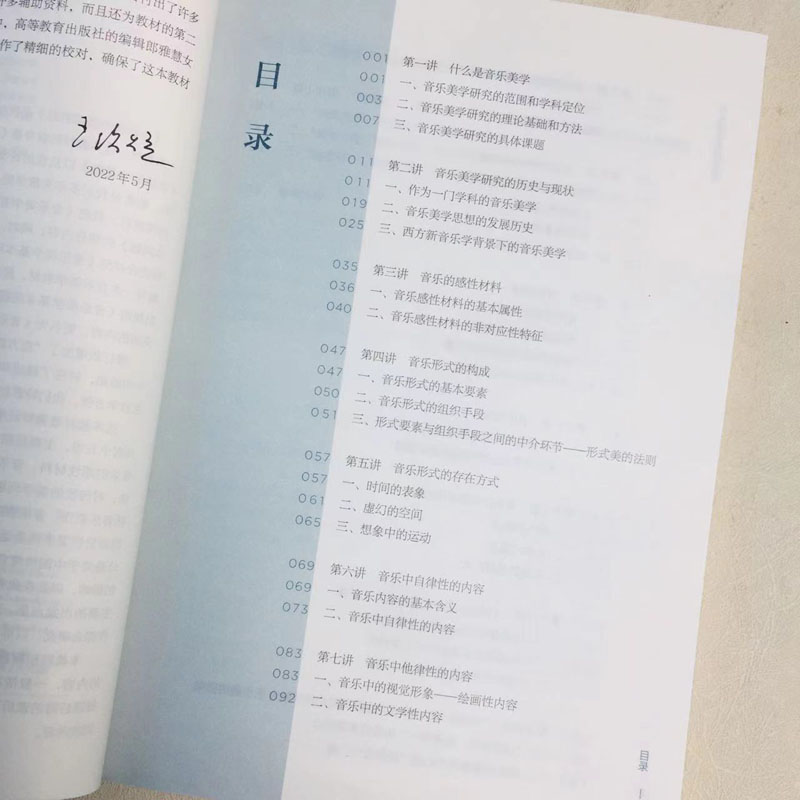 付出了许多
多辅助资料，而且还为教材的第二
高等教育出版社的编辑郎雅慧女
作了精细的校对，确保了这本教材
王次炤
2022年5月
目录
001 第一讲 什么是音乐美学
001 一、音乐美学研究的范围和学科定位
003 二、音乐美学研究的理论基础和方法
007 三、音乐美学研究的具体课题
011 第二讲 音乐美学研究的历史与现状
011 一、作为一门学科的音乐美学
019 二、音乐美学思想的发展历史
025 三、西方新音乐学背景下的音乐美学
035 第三讲 音乐的感性材料
036 一、音乐感性材料的基本属性
040 二、音乐感性材料的非对应性特征
047 第四讲 音乐形式的构成
047 一、音乐形式的基本要素
050 二、音乐形式的组织手段
051 三、形式要素与组织手段之间的中介环节——形式美的法则
057 第五讲 音乐形式的存在方式
057 一、时间的表象
061 二、虚幻的空间
065 三、想象中的运动
069 第六讲 音乐中自律性的内容
069 一、音乐内容的基本含义
073 二、音乐中自律性的内容
083 第七讲 音乐中他律性的内容
083 一、音乐中的视觉形象——绘画性内容
092 二、音乐中的文学性内容
目录